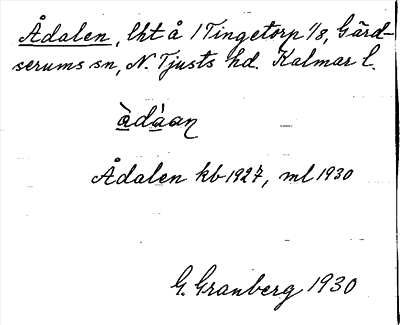 Ådalen, lht å 1 Tingetorp 1/8, Gärd-
serums sn, N. Tjusts hd. Kalmar l.
àdáan
Ådalen kb 1927, ml 1930
G. Granberg 1930